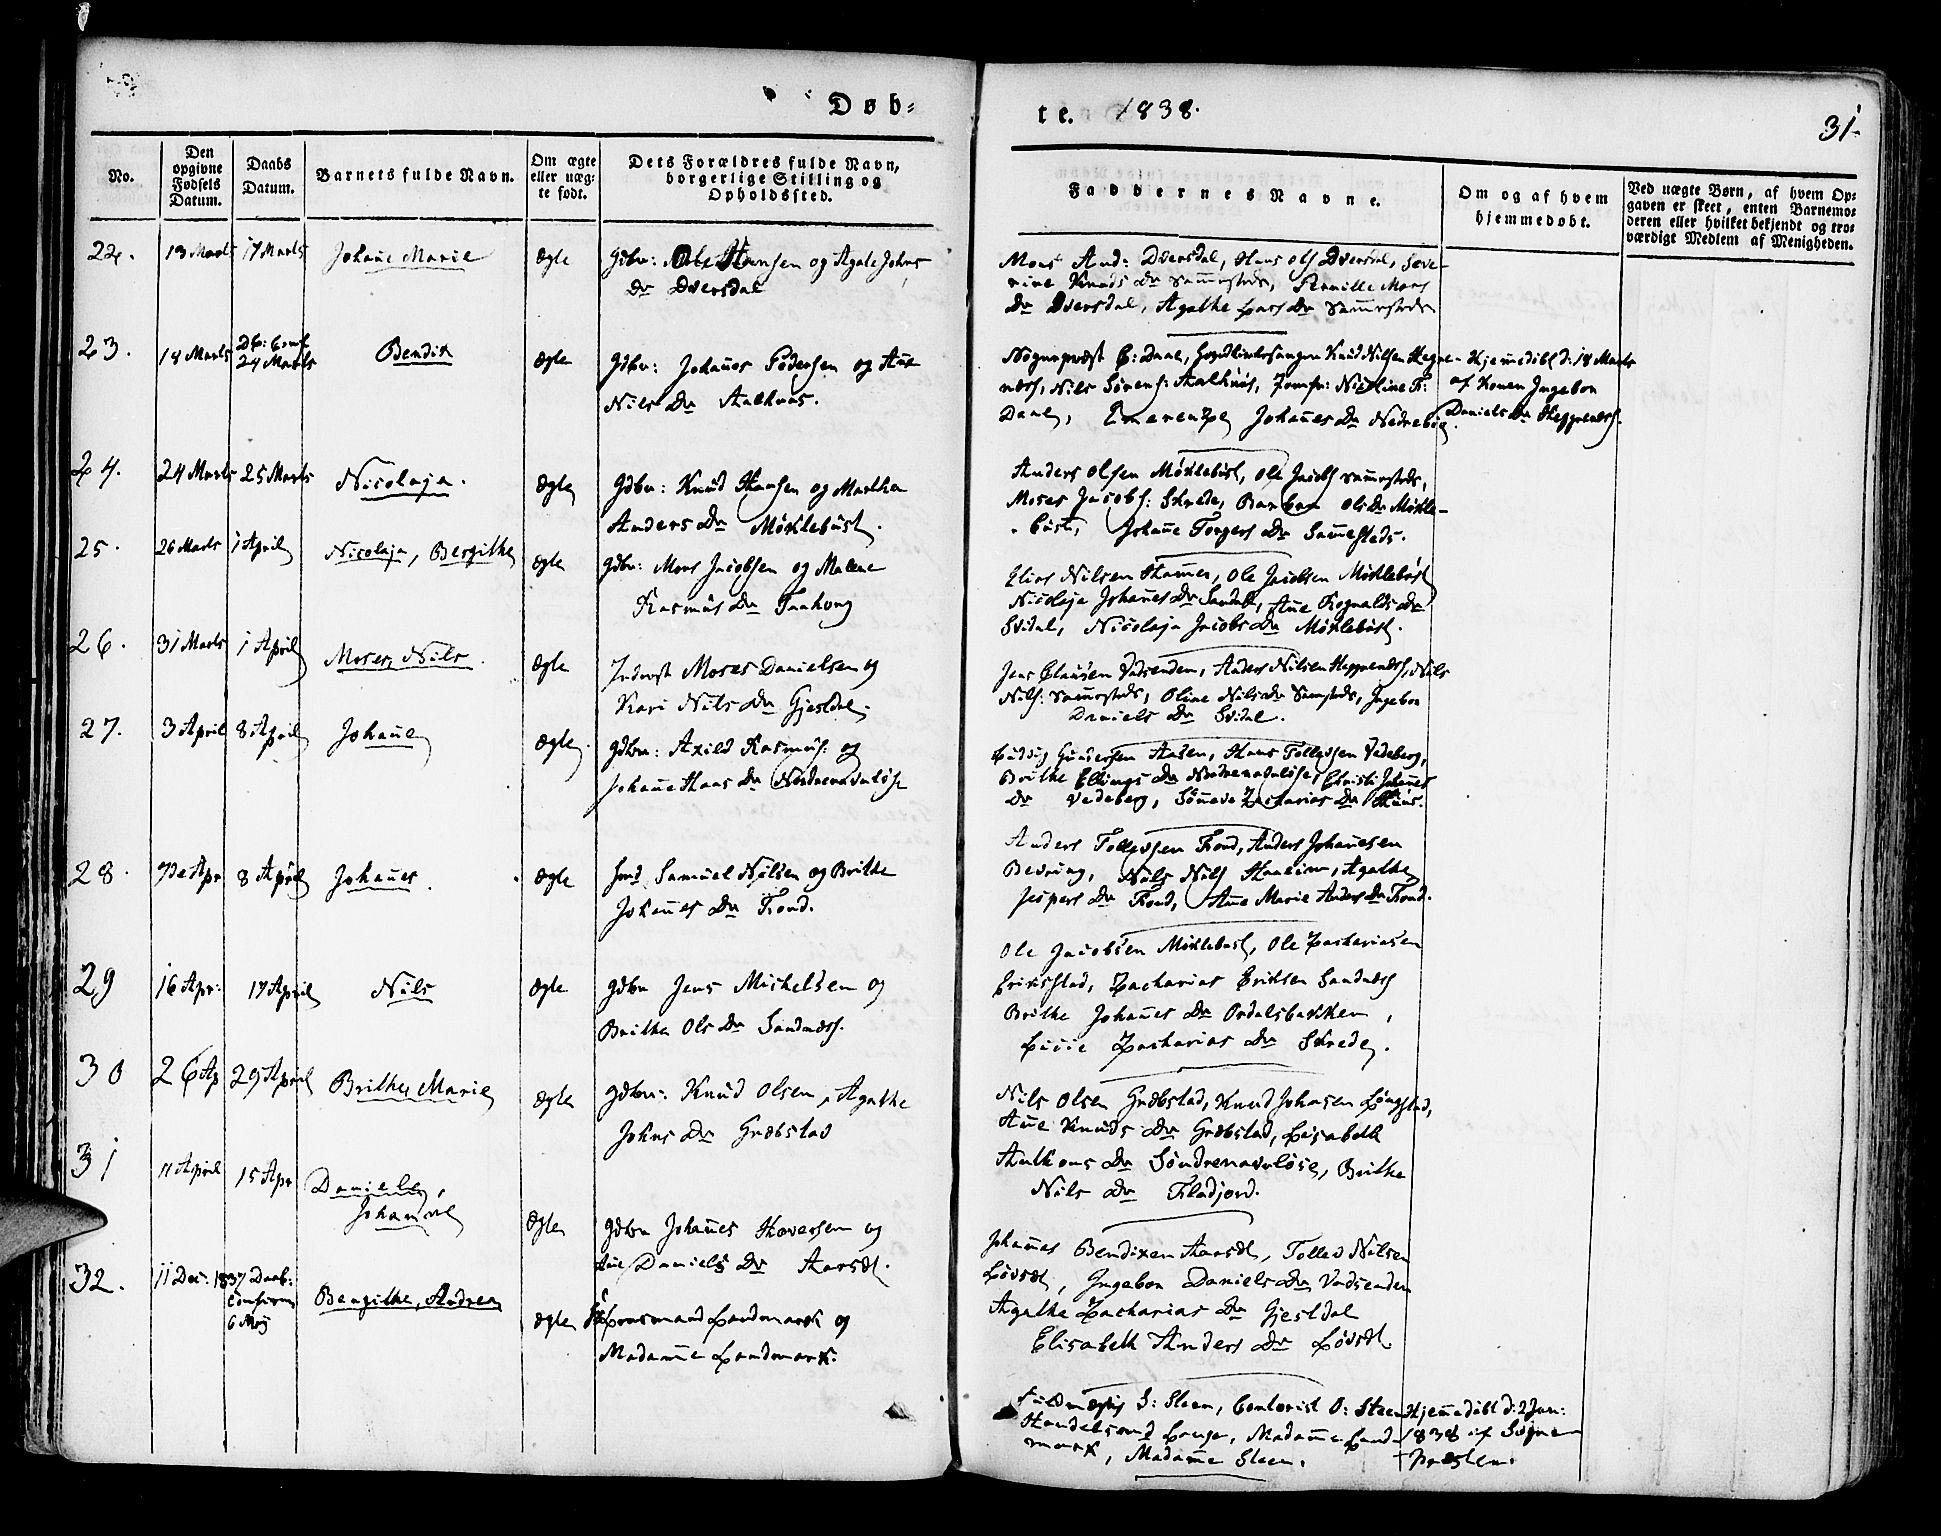 Døb=
te. 1838.
31.
No.
Den opgivne Fødsels Datum.
Daabs Datum.
Barnets fulde Navn.
Om ægte eller uæg= te født.
Dets Forældres fulde Navn, borgerlige Stilling og Opholdssted.
Faddernes Navne.
Om og af hvem hjemmedøbt.
Ved uægte Børn, af hvem Op=
gaven er skeet, enten Barnemo=
deren eller hvilket bekjendt og tro=
værdigt Medlem af Menigheden.
22. 13 Marts 17 Marts Johane Marie Ægte Gdbr: Hansen og Agate Johns
Dr Dversdal
Mons And: Dversdal, Hans Ols Dversdal, Seve-
rine Knuds Dr sammesteds, Pernille Mons
Dr Dversdal, Agathe Lars Dr sammesteds
23. 18 Marts Db: Conf. 24 Marts Bendix Ægte Gdbr: Johanes Pedersen og Ane
Nils Dr Aalhuus.
Sognepræst C: Daae, Knud Nilsen Hegre-
næss, Nils Sørens: Aalhuus, Jomfr: Nicoline F:
Daae, Johanes Dr Nedrebøe
Hjemedøbt d: 18 Marts
af Konen Ingebor
Daniels Dr Heggrenæss.
24. 24 Marts 25 Marts Nicolaja. Ægte Gdbr: Knud Hansen og Marthe
Anders Dr Møklebust.
Anders Olsen Møklebust, Ole Jacobs sammesteds,
Moses Jacobs: Skrede, Barbra Ols Dr Møkle-
bust, Johane Torgers Dr Samesteds.
25. 26 Marts 1 April Nicolaja, Bergithe Ægte Gdbr: Mons Jacobsen og Malene
Rasmus Dr
Elias Nilsen Hamer, Ole Jacobsen Møklebust
Nicolaja Johanes Dr Sandal, Ane Rognalds Dr
Svidal, Nicolaja Jacobs Dr Møklebust.
26. 31 Marts 1 April Moses Nils. Ægte Inderst Moses Danielsen og
Kari Nils Dr Gjesdal.
Jens Clausen Vadsenden, Anders Nilsen Heggrenæss, Nils
Nils: sammesteds, Oline Nils Dr Samsteds, Ingebor
Daniels Dr Svidal.
27. 3 April 8 April Johane Ægte. Gdbr: Axild Rasmus: og
Johane Hans Dr Nordrenavløse
Ludvig Gundersen Aasen, Hans Tollevsen Vedeberg,
Brithe Ellings Dr Nordrenavløse, Christi Johanes
Dr Vedeberg, Sønneve Zacharias Dr Huus.
28. 7de Apr 8 April Johanes. Ægte Samuel Nilsen og Brithe
Johanes Dr Fond.
Anders Tollevsen Fond, Anders Johanesen
Bedring, Nils Nils Agathe
Jespers Dr Fond, Ane Marie Anders Dr Fond.
29 16 Apr: 17 April Nils Ægte Gdbr Jens Michelsen og
Brithe Ols Dr Sandnæss.
Ole Jacobsen Møklebust, Ole Zachariasen
Eriksstad, Zacharias Eriksen Sandnæss
Brithe Johanes Dr Ordalsbakken,
Lucie Zacharias Dr Skrede.
30 26 Ap 29 April Brithe Marie Ægte Gdbr: Knud Olsen, Agathe
Johns Dr Græbstad
Nils Olsen Græbstad, Knud Johnsen
Ane Knuds Dr Græbstad, Lisabeth
Anthons Dr Søndrenavløse, Brithe
Nils Dr Fladjord.
31 11 April 15 Apr Daniele,
Johanne Ægte Gdbr Johanes Haversen og
Ane Daniels Dr Aarsdt.
Johannes Bendixen Aarsdt, Tollev Nilsen
Løvsdt, Ingebor Daniels Dr Vadsenden
Agathe Zacharias Dr Gjesdal
Elisabeth Anders Dr Løvsdt.
32. 11 Dec: 1837 Daab: Confirm 6 Maj Bergithe, Andrea Ægte Landmark og
Madamme Landmark.
Fuldmægtig S: Steen, Contorist O: Steen
Handelsmd Lange, Madamme Land-
mark, Madamme Steen.
Hjemedøbt d: 2 Jan:
1838 af Sogne-
Præsten.